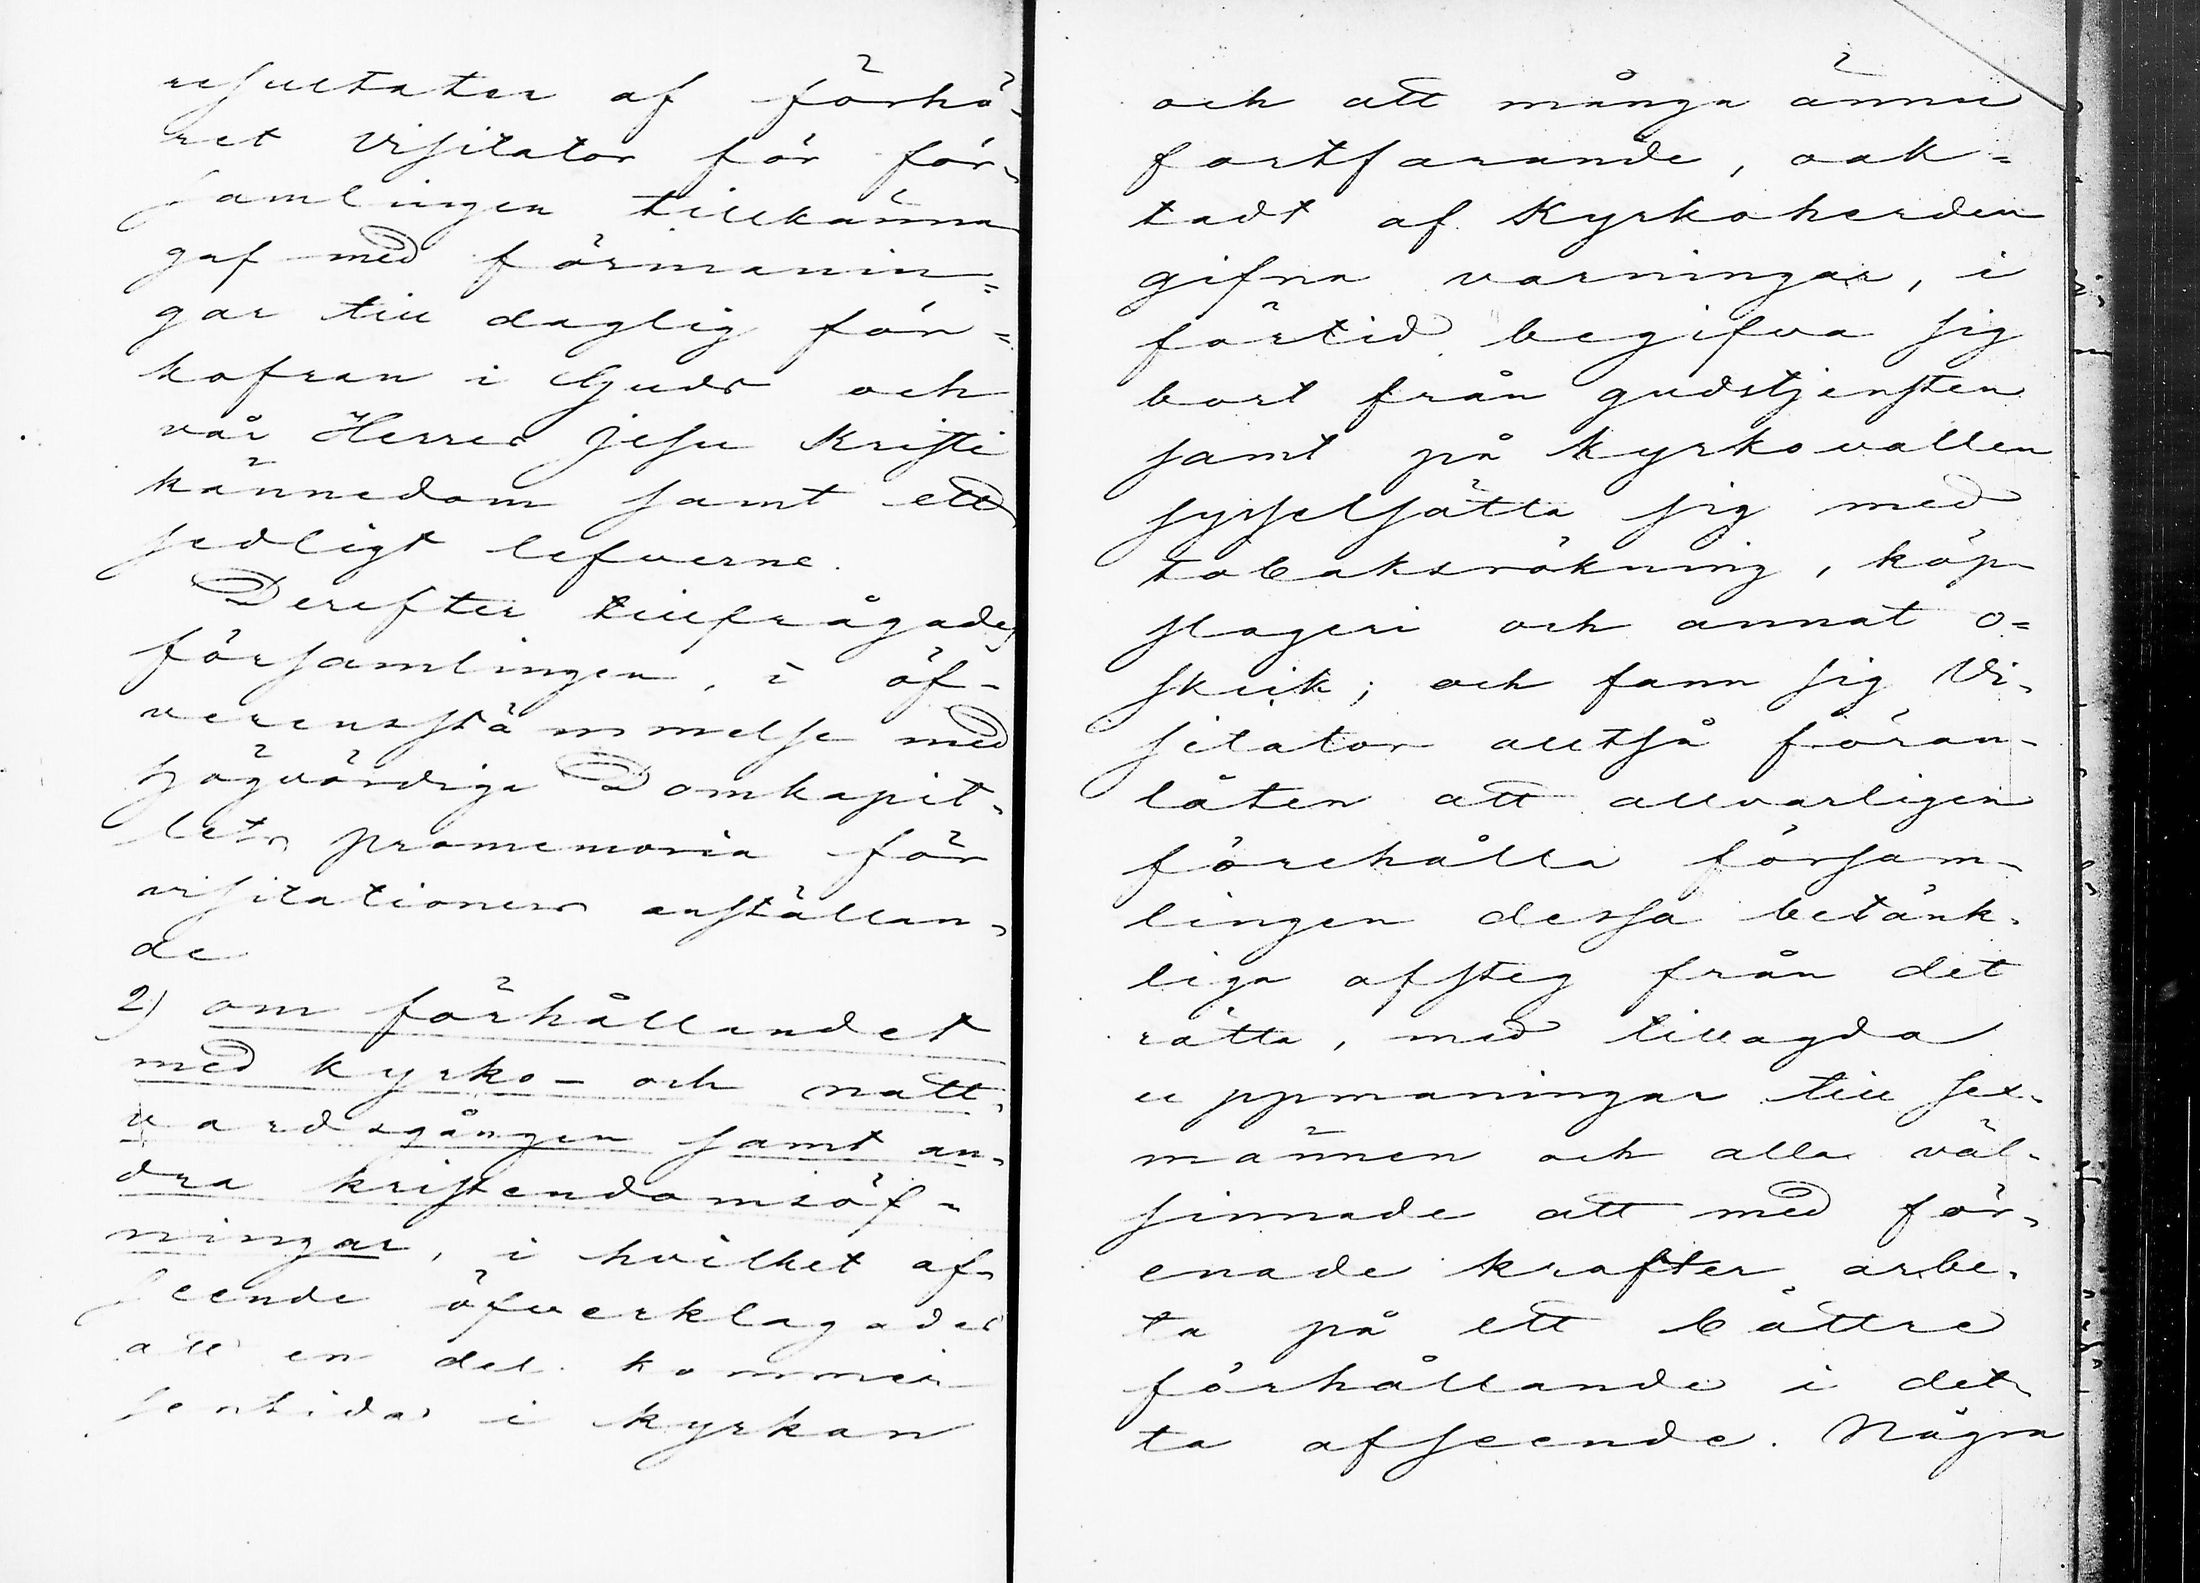 resultater af förhö-
ret Visitator för för-
samlingen tillkänna
gaf med förmanin=
gar till daglig för=
kofran i Guds och
vår Herres Jesu Kristi
kännedom samt ett
sedligt lefverne.
Derefter tillfrågades
församlingen, i öf-
verensstämmelse med
högvördiga Domkapit-
lets promemoria för
visitationers anställan-
de
2) om förhållandet
med kyrko- och natt-
vardsgången samt an-
dra kristendomsöf-
ningar, i hvilket af-
seende öfverklagades
att en del kommer
sentidas i kyrkan
och att många ännu
fortfarande, oak=
tadt af Kyrkoherden
gifna varningar, i
förtid begifva sig
bort från gudstjensten
samt på kyrkovallen
sysselsätta sig med
tobaksrökning, köp-
slageri och annat o=
skick; och fann sig Vi-
sitator alltså föran-
låten att allvarligen
förehålla försam-
lingen dessa betänk-
liga afsteg från det
rätta, med tillagda
uppmaningar till sex-
männen och alla väl-
sinnade att med för-
enade krafter arbe-
ta på ett bättre
förhållande i det-
ta afseende. Några